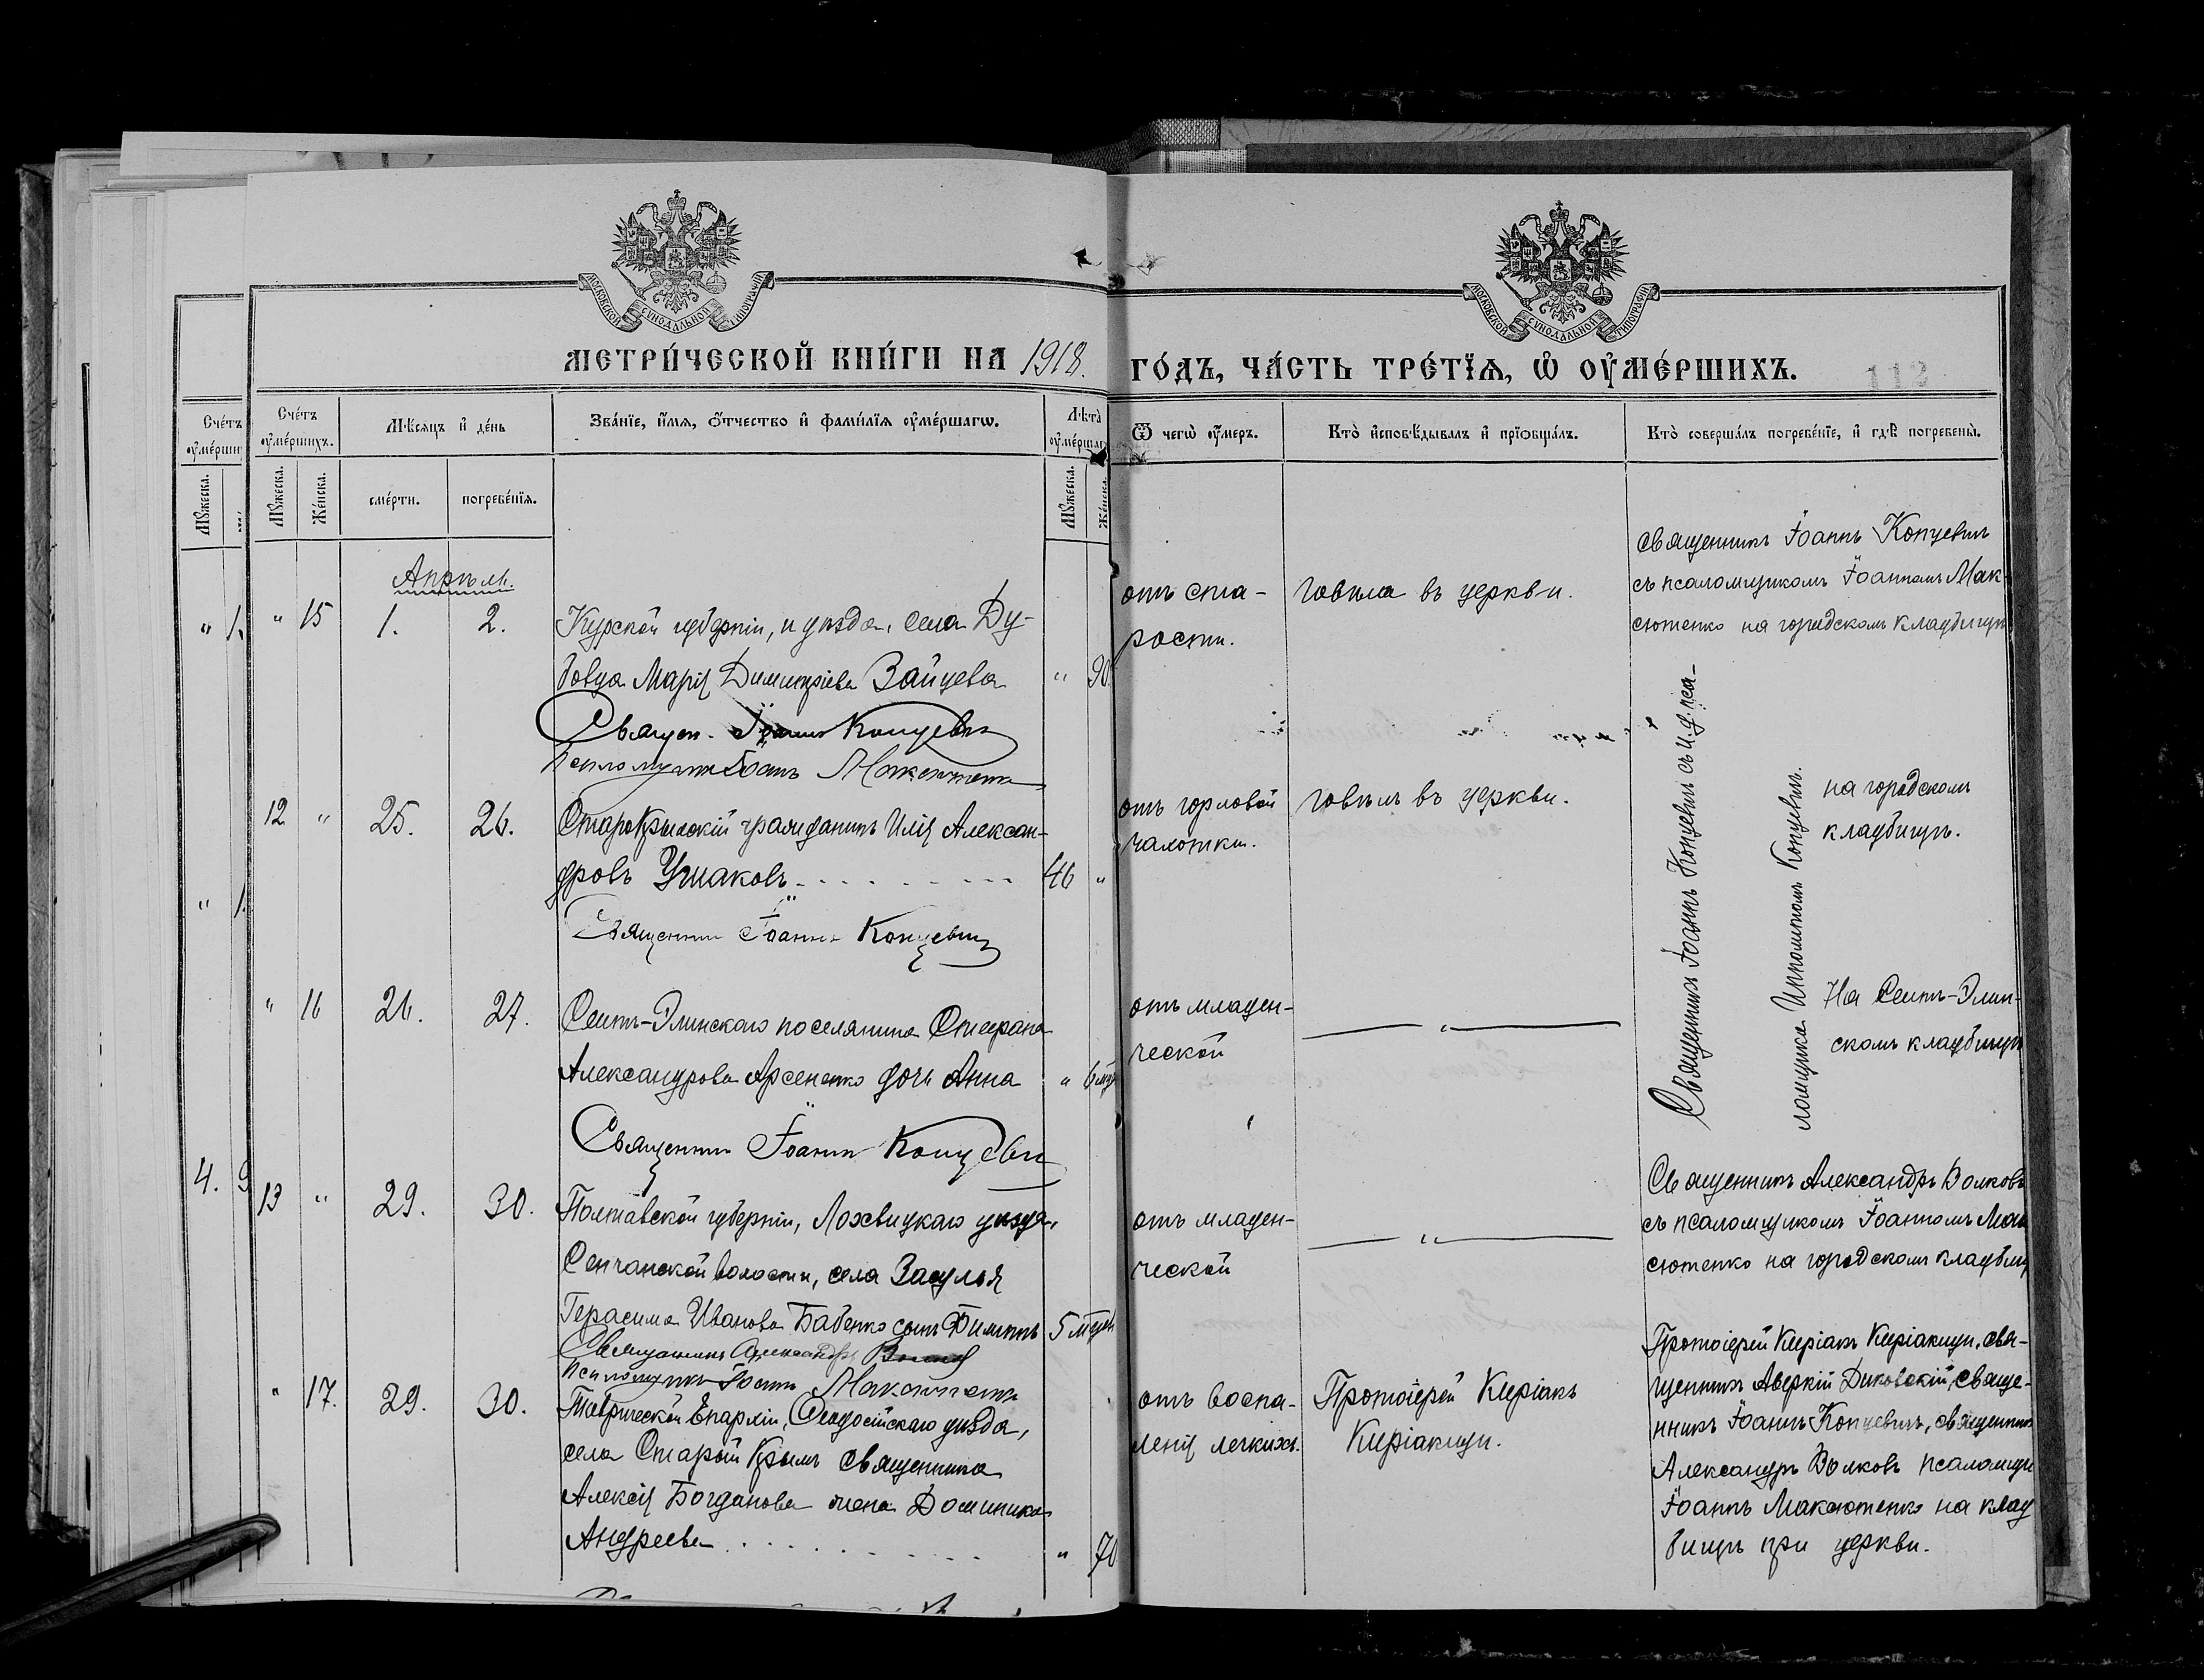 МОСКОВСКОЙ СѴНОДАЛЬНОЙ ТИПОГРАФІИ
МОСКОВСКОЙ СѴНОДАЛЬНОЙ ТИПОГРАФІИ
МЕТРИ́ЧЕСКОЙ КНИ́ГИ НА 1918.
ГО́ДЪ, ЧА́СТЬ ТРЕ́ТЇѦ, Ѡ҆ ОУ҆МЕ́РШИХЪ.
112
Сче́тъ
Сче́тъ оу҆ме́ршихъ.
Мѣ́сѧцъ и҆ де́нь
Зва́нїе, и҆́мѧ, ѻ҆́тчество и҆ фами́лїѧ оу҆ме́ршагѡ.
Лѣта̀
Ѿ чегѡ̀ оу҆́меръ.
Кто̀ и҆сповѣ́дывалъ и҆ прїѡбща́лъ.
Кто̀ соверша́лъ погребе́нїе, и҆ гдѣ̀ погребены̀.
Мꙋ́жеска.
Мꙋ́жеска.
Же́нска.
сме́рти.
погребе́нїѧ.
Мꙋ́жеска.
Же́нска.
Апрѣль.
" 15 1. 2.
Курской губерніи, и уѣзда, села Ду-
бовца Марія Димитріева Зайцева " 90.
Священ. Іоаннъ Концевич
Псаломщикъ Іоаннъ Максютенко
от ста-
рости.
говѣла въ церкви.
Священникъ Іоаннъ Концевичъ
съ псаломщикомъ Іоанномъ Мак-
сютенко на городскомъ кладбищѣ
12 " 25. 26.
Старокрымскій гражданинъ Илія Алексан-
дровъ Ушаковъ 46 "
Священник Іоаннъ Концевич
отъ горловой
чахотки.
говѣлъ въ церкви.
Священникъ Іоаннъ Концевичъ съ и.д. пса-
ломщика Концевичъ.
на городскомъ
кладбищѣ.
" 16 26. 27.
Сеитъ-Элинскаго поселянина Стефана
Александрова Арсененко дочь Анна "
Священник Іоанн Концевич
отъ младен-
ческой
"
На Сеитъ-Элин-
скомъ кладбищѣ
13 " 29. 30.
Полтавской губерніи, Лохвицкаго уѣзда,
Сенчанской волости, села Засулья
Герасима Иванова Бабенко сынъ 5
Священникъ Александръ Волков
Псаломщикъ Іоаннъ Максютенко
отъ младен-
ческой
"
Священникъ Александръ Волковъ
съ псаломщикомъ Іоанномъ Мак
сютенко на городскомъ кладбищ
" 17. 29. 30.
Таврической Епархіи, Ѳеодосійскаго уѣзда,
села Старый Крымъ священника
Алексія Богданова жена Доминика
Андреева " 70
отъ воспа-
ленія легкихъ.
Протоіерей Киріакъ
Киріакиди.
Протоіерей Киріакъ Киріакиди, свя-
щенникъ Аверкій Диковскій, свяще-
нникъ Іоаннъ Концевичъ, священникъ
Александръ Волковъ псаломщи
Іоаннъ Максютенко на клад
бищѣ при церкви.